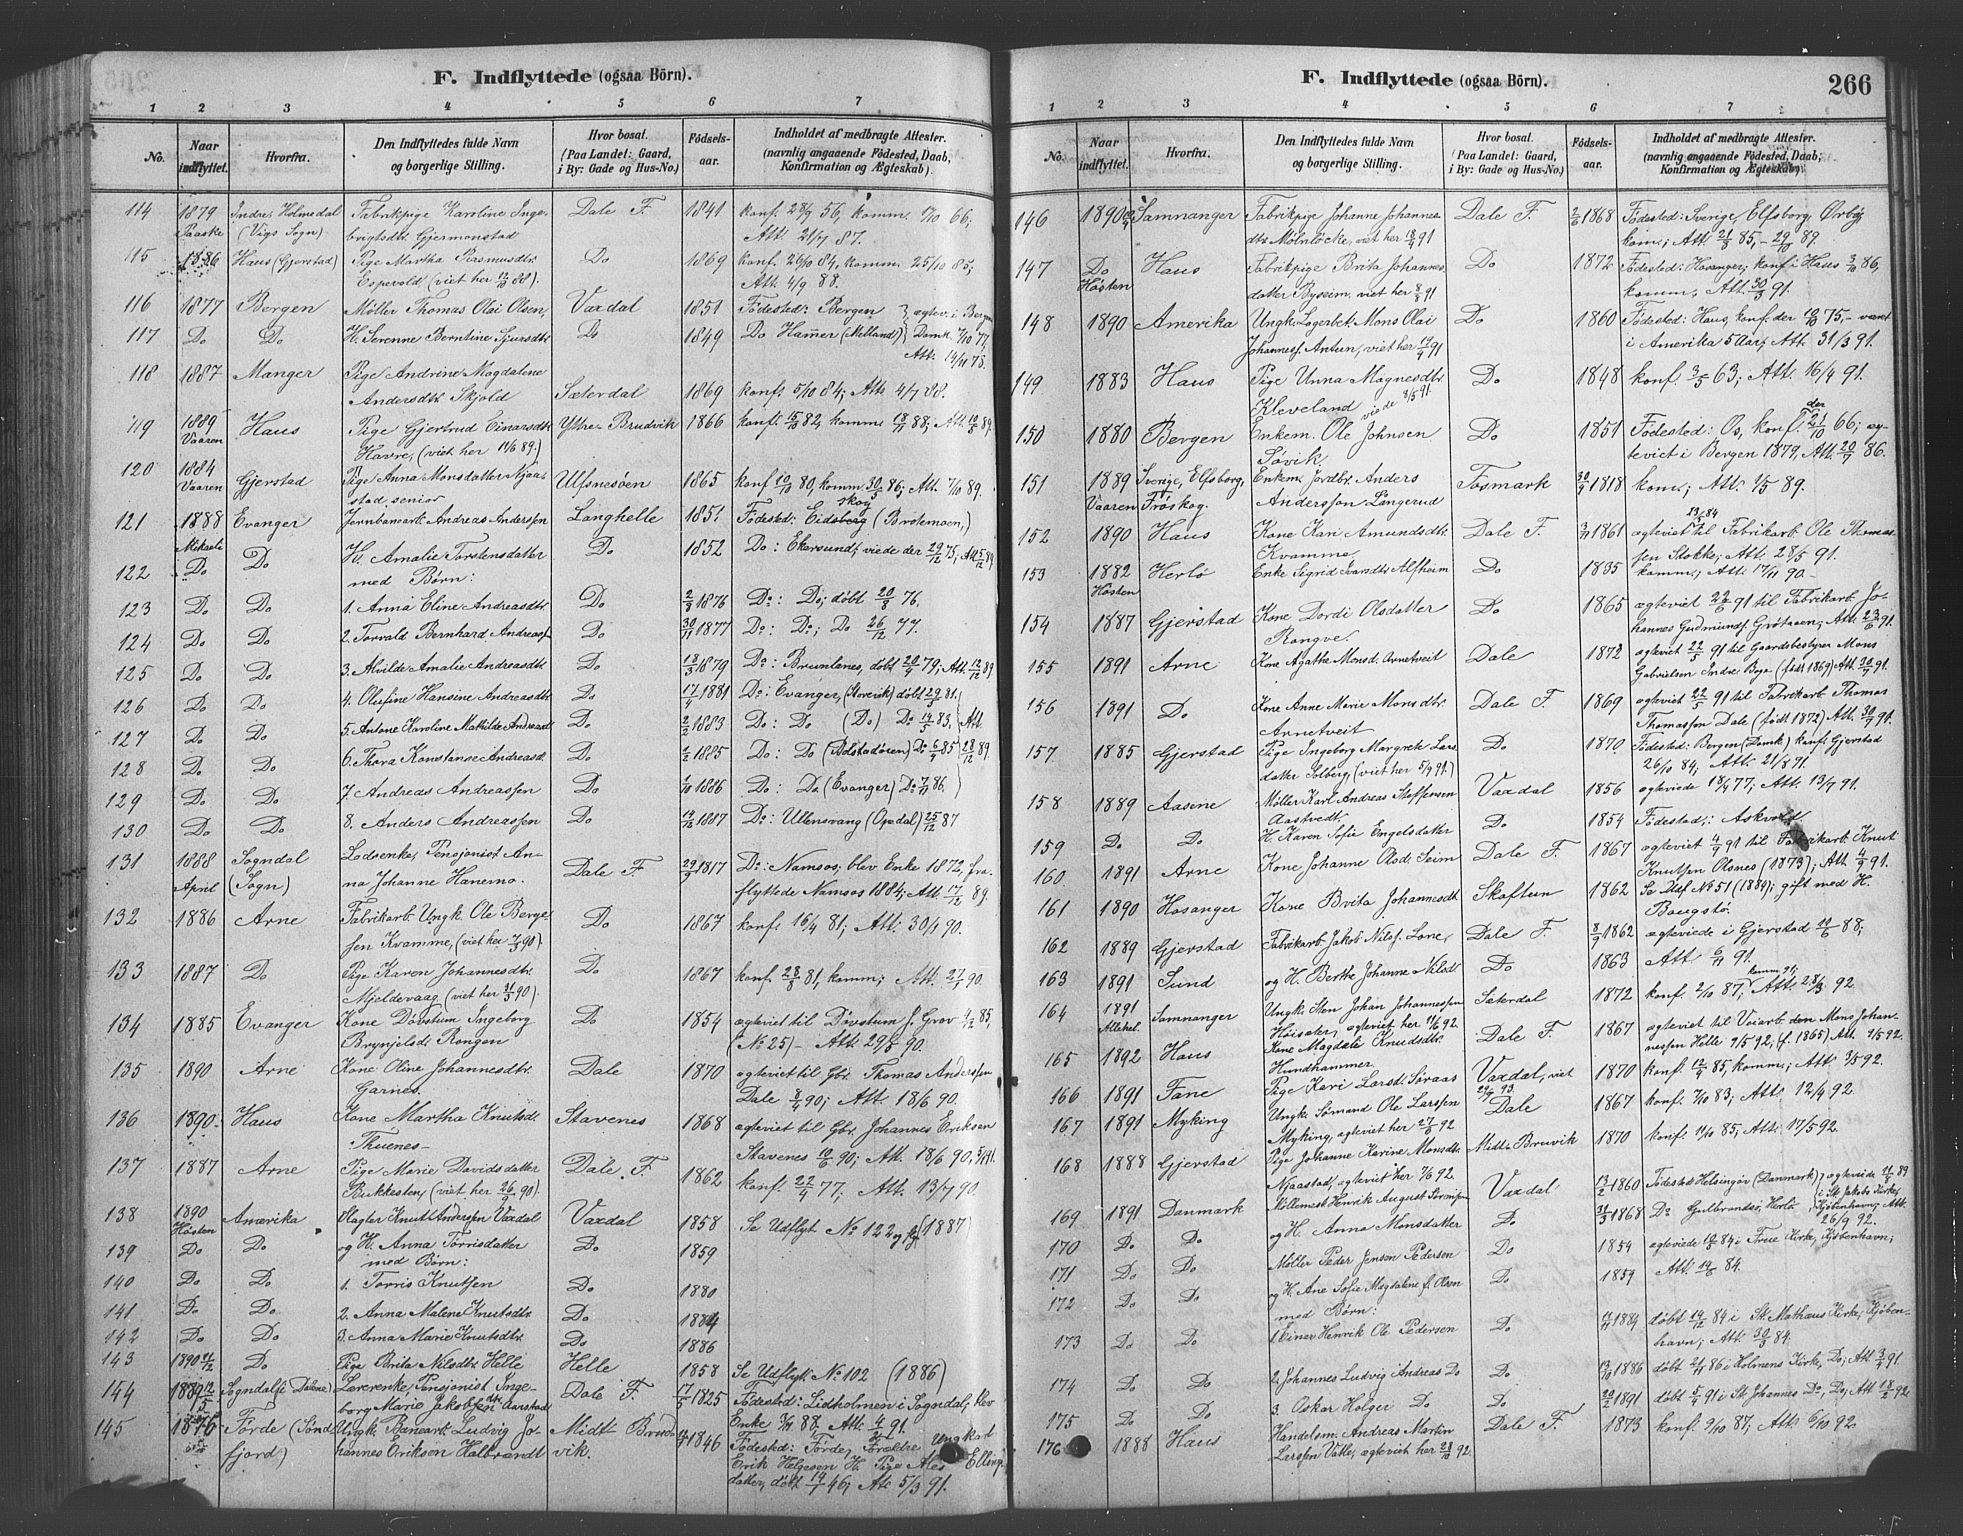 F. Indflyttede (ogsaa Börn).
1 2 3 4 5 6 7
No. Naar indflyttet. Hvorfra. Den Indflyttedes fulde Navn og borgerlige Stilling. Hvor bosat. (Paa Landet: Gaard, i By: Gade og Hus-No.) Födsels-aar. Indholdet af medbragte Attester. (navnlig angaaende Födested, Daab, Konfirmation og Ægteskab).
114 1879 Paaske Indre Holmedal (Vigs Sogn) Fabrikpige Karoline Inge-
brigtsdtr Gjermonstad Dale F. 1841 konf. 28/9 56, komm. 7/10 66,
Att. 21/7 87.
115 1886 Haus (Gjerstad) Pige Martha Rasmusdtr
Espevold (viet her 88). Do 1869 konf. 26/10 84, komm. 25/10 85;
Att. 4/9 88.
116 1877 Bergen Møller Thomas Olai Olsen, Vaxdal 1851 Födested: Bergen } ægtev. i Bergen
117 Do Do H. Serenne Berntine Sjursdtr Do 1849 Do Hammer (Melland) } Domk 7/10 77,
Att. 14/11 78.
118 1887 Manger Pige Andrine Magdalene
Andersdtr Skjold Sæterdal 1869 konf. 5/10 84; Att. 4/7 88.
119 1889 Vaaren Haus Pige Gjertrud Einarsdtr
Havre, (viet her 11/6 89.) Yttre Brudvik 1866 konf. 15/10 82, komm. 88; Att. 89.
120 1884 Vaaren Gjerstad Pige Anna Monsdatter Njaa-
stad senior Ulfsnesöen 1865 konf 10/10 80, komm. 30/5 86; Att. 7/10 89.
121 1888 Mikaeli Evanger Jernbanearb. Andreas Anderssen Langhelle 1851 Födested: Eidsberg skog (Brotemoen,)
122 Do Do H. Amalie Torstensdatter
med Børn: Do 1852 Do: Ekersund; viede der 29/12 75, Att. 89.
123 Do Do 1. Anna Eline Andreasdtr Do 1876 Do: Do; döbt 20/8 76.
124 Do Do 2. Torvald Bernhard Andreass. Do 30/11 1877 Do: Do; Do 26/12 77.
125 Do Do 3. Alvilde Amalie Andreasdtr. Do 18/3 1879 Do: Brunlenes, döbt 20/4 79; Att. 89
126 Do Do 4. Olufine Hansine Andreasdtr Do 17/4 1881 Do: Evanger, döbt 29/5 81.
127 Do Do 5. Antone Karoline Mathilde Andreasdt Do 2/2 1883 Do: Do (Do) Do 83. Att
128 Do Do 6. Thora Konstanse Andreasdt Do 1/2 1885 Do: Do (Bolstadören) Do 6/4 85 28/12 89.
129 Do Do 7. Andreas Andreassen Do 1/10 1886 Do: Do (Evanger) Do 7/11 86.
130 Do Do 8. Anders Andreassen Do 1887 Do: Ullensvang (Opedal) 25/12 87
131 1888 April Sogndal (Sogn) Lodsenke, Pensjonist An-
na Johanne Hanemo. Dale F. 29/9 1817 Do: Namsos, blev Enke 1872, fra-
flyttede Namsos 1884; Att. 17/12 89.
132 1886 Arne Fabrikarb. Ungk. Ole Berge-
sen Kvamme, (viet her 90) Do 1867 konf. 16/4 81; Att: 30/1 90.
133 1887 Do Pige Karen Johannesdtr
Mjeldevaag (viet her 31/3 90) Do 1867 konf. 28/8 81, komm; Att. 27/1 90.
134 1885 Evanger Kone Dövstum Ingeborg
Brynjelsdtr Rongen Do 1854 ægteviet til Dövstum J. Grov 85,
(No 25) - Att. 29/5 90.
135 1890 Arne Kone Oline Johannesdtr.
Garnes. Dale 1870 ægteviet til Gbr. Thomas Anderssen
Dale 8/4 90; Att. 18/6 90.
136 1890 Haus Kone Martha Knutsdr
Thuenes- Stavenes 1868 ægteviet til Gbr. Johannes Eriksen
Stavenes 90; Att. 18/6 90,
137 1887 Arne Pige Marie Davidsdatter
Bukkesten, (viet her 26/9 90) Dale F. 1862 konf. 22/4 77; Att. 13/7 90.
138 1890 Hösten Amerika Slagter Knut Anderssen Vaxdal Vaxdal 1858 Se Udflyt No 122 og (1887)
139 Do Do og H. Anna Torrisdatter
med Börn: Do 1859
140 Do Do 1. Torris Knutsen Do 1880
141 Do Do 2. Anna Malene Knutsdtr Do 1884
142 Do Do 3. Anna Marie Knutsdtr. Do 1886
143 1890 21/12 Do Pige Brita Nilsdtr Helle Helle 1858 Se Udflyt. No 102 (1886)
144 1889 12/5 Sogndals Lærerenke, Pensjonist Inge-
borg Marie Jakobsdtr Aarstad Dale F. 1825 Födested: Lidholmen i Sogndal, blev
Enke 88. Att. 4/1 91.
145 1876 Förde (Sönd-
fjord) Ungk. Banearb. Ludvig Jo-
hannes Eriksen Halbrandt Midt Brud-
vik. 1846 Födested: Förde; Forældre Ungkarl
Erik Helgesen H. Pige Ales Elling
datter, döbt 46; Att. 5/3 91.
F. Indflyttede (ogsaa Börn).
266
1 2 3 4 5 6 7
No. Naar indflyttet. Hvorfra. Den Indflyttedes fulde Navn og borgerlige Stilling. Hvor bosat. (Paa Landet: Gaard, i By: Gade og Hus-No.) Födsels-aar. Indholdet af medbragte Attester. (navnlig angaaende Födested, Daab, Konfirmation og Ægteskab).
146 1890 Samnanger Fabrikpige Johanne Johannes-
dtr Mölnlöcke, viet her 18/4 91 Dale F. 2/6 1868 Födested: Sverige, Elfsborg, Örby
kom; Att. 21/8 85,- 29/10 89.
147 Do Hösten Haus Fabrikpige Brita Johannes-
datter Byseim, viet her 8/8 91 Do 1872 Födested: Hosanger; konf. i Haus 3/10 86,
komm; Att. 30/3 91.
148 1890 Amerika Ungk. Lagerbet. Mons Olai
Johannesf. Antun, viet her 91 Do 1860 Födested: Haus, konf. der 10/10 75,- været
i Amerika 5 Aar; Att. 31/3 91.
149 1883 Haus Pige Unna Magnesdtr.
Kleveland viede 8/5 91. Do 1848 konf. 3/5 63; Att. 16/4 91.
150 1880 Bergen Enkem. Ole Johnsen
Søvik. Do 1851 Födested: Os, konf. der 21/10 66; æg-
teviet i Bergen 1879, Att. 20/7 86.
151 1889 Vaaren Sverige, Elfsborg,
Fröskog. Enkem. Jordbr. Anders
Andersson Långerud Fosmark 30/9 1818 kom; Att. 1/5 89.
152 1890 Haus Kone Kari Amundsdtr.
Kvamme Dale F. 3/11 1861 ægteviet 84 til Fabrikarb. Ole Thomas-
sen Stokke; Att. 28/5 91.
153 1882 Hösten Herlö Enke Sigrid Ivarsdtr Alfheim Do 1835 komm; Att. 17/11 90.-
154 1887 Gjerstad Kone Dordi Olsdatter
Rongve. Do 1865 ægteviet 22/6 91 til Fabrikarb. Jo-
hannes Gudmunds. Grötaaen; Att. 23/6 91.
155 1891 Arne Kone Agatha Monsd. Arnetveit Dale 1872 ægteviet 22/5 91 til Gaardsbestyrer Mons
Gabrielsen Indre Boge (födt 1869) Att. 30/4 91.
156 1891 Do Kone Anne Marie Monsdtr.
Arnetveit Dale F. 1869 ægteviet 22/5 91 til Fabrikarb. Thomas
Thomassen Dale (födt 1872) Att. 30/4 91.
157 1885 Gjerstad Pige Ingeborg Margrete Lars-
datter Solberg, (viet her 5/9 91.) Do 1870 Födested: Bergen (Domk) konf. Gjerstad
26/10 84; Att. 21/8 91.
158 1889 Aasene Møller Karl Andreas Steffensen
Aastvedt Vaxdal 1856 ægteviede 18/4 77; Att. 13/7 91.
159 Do Do H. Karen Sofie Engelsdatter Do 1854 Födested: Askvold
160 1891 Arne Kone Johanne Olsdr Seim Dale F. 1867 ægteviet 4/9 91 til Fabrikarb. Knut
Knutsen Olsnes (1873); Att. 4/9 91.
161 1890 Hosanger Kone Brita Johannesdt Skaftun 1862 Se Udf No 51 (1889); gift med H.
Baugstö.
162 1889 Gjerstad Fabrikarb. Jakob Nilss. Lone, Dale F. 8/9 1862 ægteviede i Gjerstad 88;
163 1891 Sund og H. Berthe Johanne Nilsdt Do 1863 Att. 6/11 91.
164 1891 Allehel. Samnanger Ungk. Sten Johan Johannessen
Höisæter, ægteviet her 11/6 92. Sæterdal 1872 konf. 2/10 87; komm. 91; Att. 28/3 92.
165 1892 Haus Kone Magdali Knudsdtr.
Hundhammer. Dale F. 1867 ægteviet til Veiarb. den Mons Johan-
nessen Helle 9/5 92; (f. 1865) Att. 9/5 92.
166 1891 Fane Pige Kari Larsdt. Söraas Vaxdal, viet 93 1870 konf. 12/4 85, komm; Att. 3/5 92.
167 1891 Myking Ungk. Sömand Ole Larssen
Myking, ægteviet her 92 Dale 1867 konf. 7/10 83; Att. 12/4 92.
168 1888 Gjerstad Pige Johanne Karine Monsdtr
Njaastad, ægteviet her 7/6 92. Midt Bruvik 1870 konf. 11/10 85; Att. 17/5 92.
169 1891 Danmark Möllemest. Henrik August Sörensen Vaxdal 13/2 1860 Födested: Helsingör (Danmark); ægteviede 89
i St. Jakobs Kirke,
Kjöbenhavn; Att.
26/9 92.
170 Do Do og H. Anna Monsdatter Do 31/3 1868 Do Gulbrandsö, Herlö
171 Do Do Möller Peder Jensen Pedersen Do 1854 ægteviede 84 i Freie Kirke, Kjöbenhavn;
172 Do Do og H. Ane Sofie Magdalene f. Olsen
med Börn: Do 1859 Att. 84.
173 Do Do 1. Einer Henrik Ole Pedersen Do 1884 döbt 84 i St. Mathæus Kirke, Kjöben-
havn; Att. 30/8 84.
174 Do Do 2. Johannes Ludvig Andreas Do Do 1886 döbt 86 i Holmens Kirke, Do; Att. 3/4 91.
175 Do Do 3. Oskar Holger Do Do 1891 döbt 5/4 91 i St. Johannes Do, Do; Att 18/2 92.
176 1888 Haus Handelsm. Andreas Martin
Larssen Vatle, ægteviet her 28/10 92. Dale F. 1873 konf. 9/10 87; Att. 6/10 92.